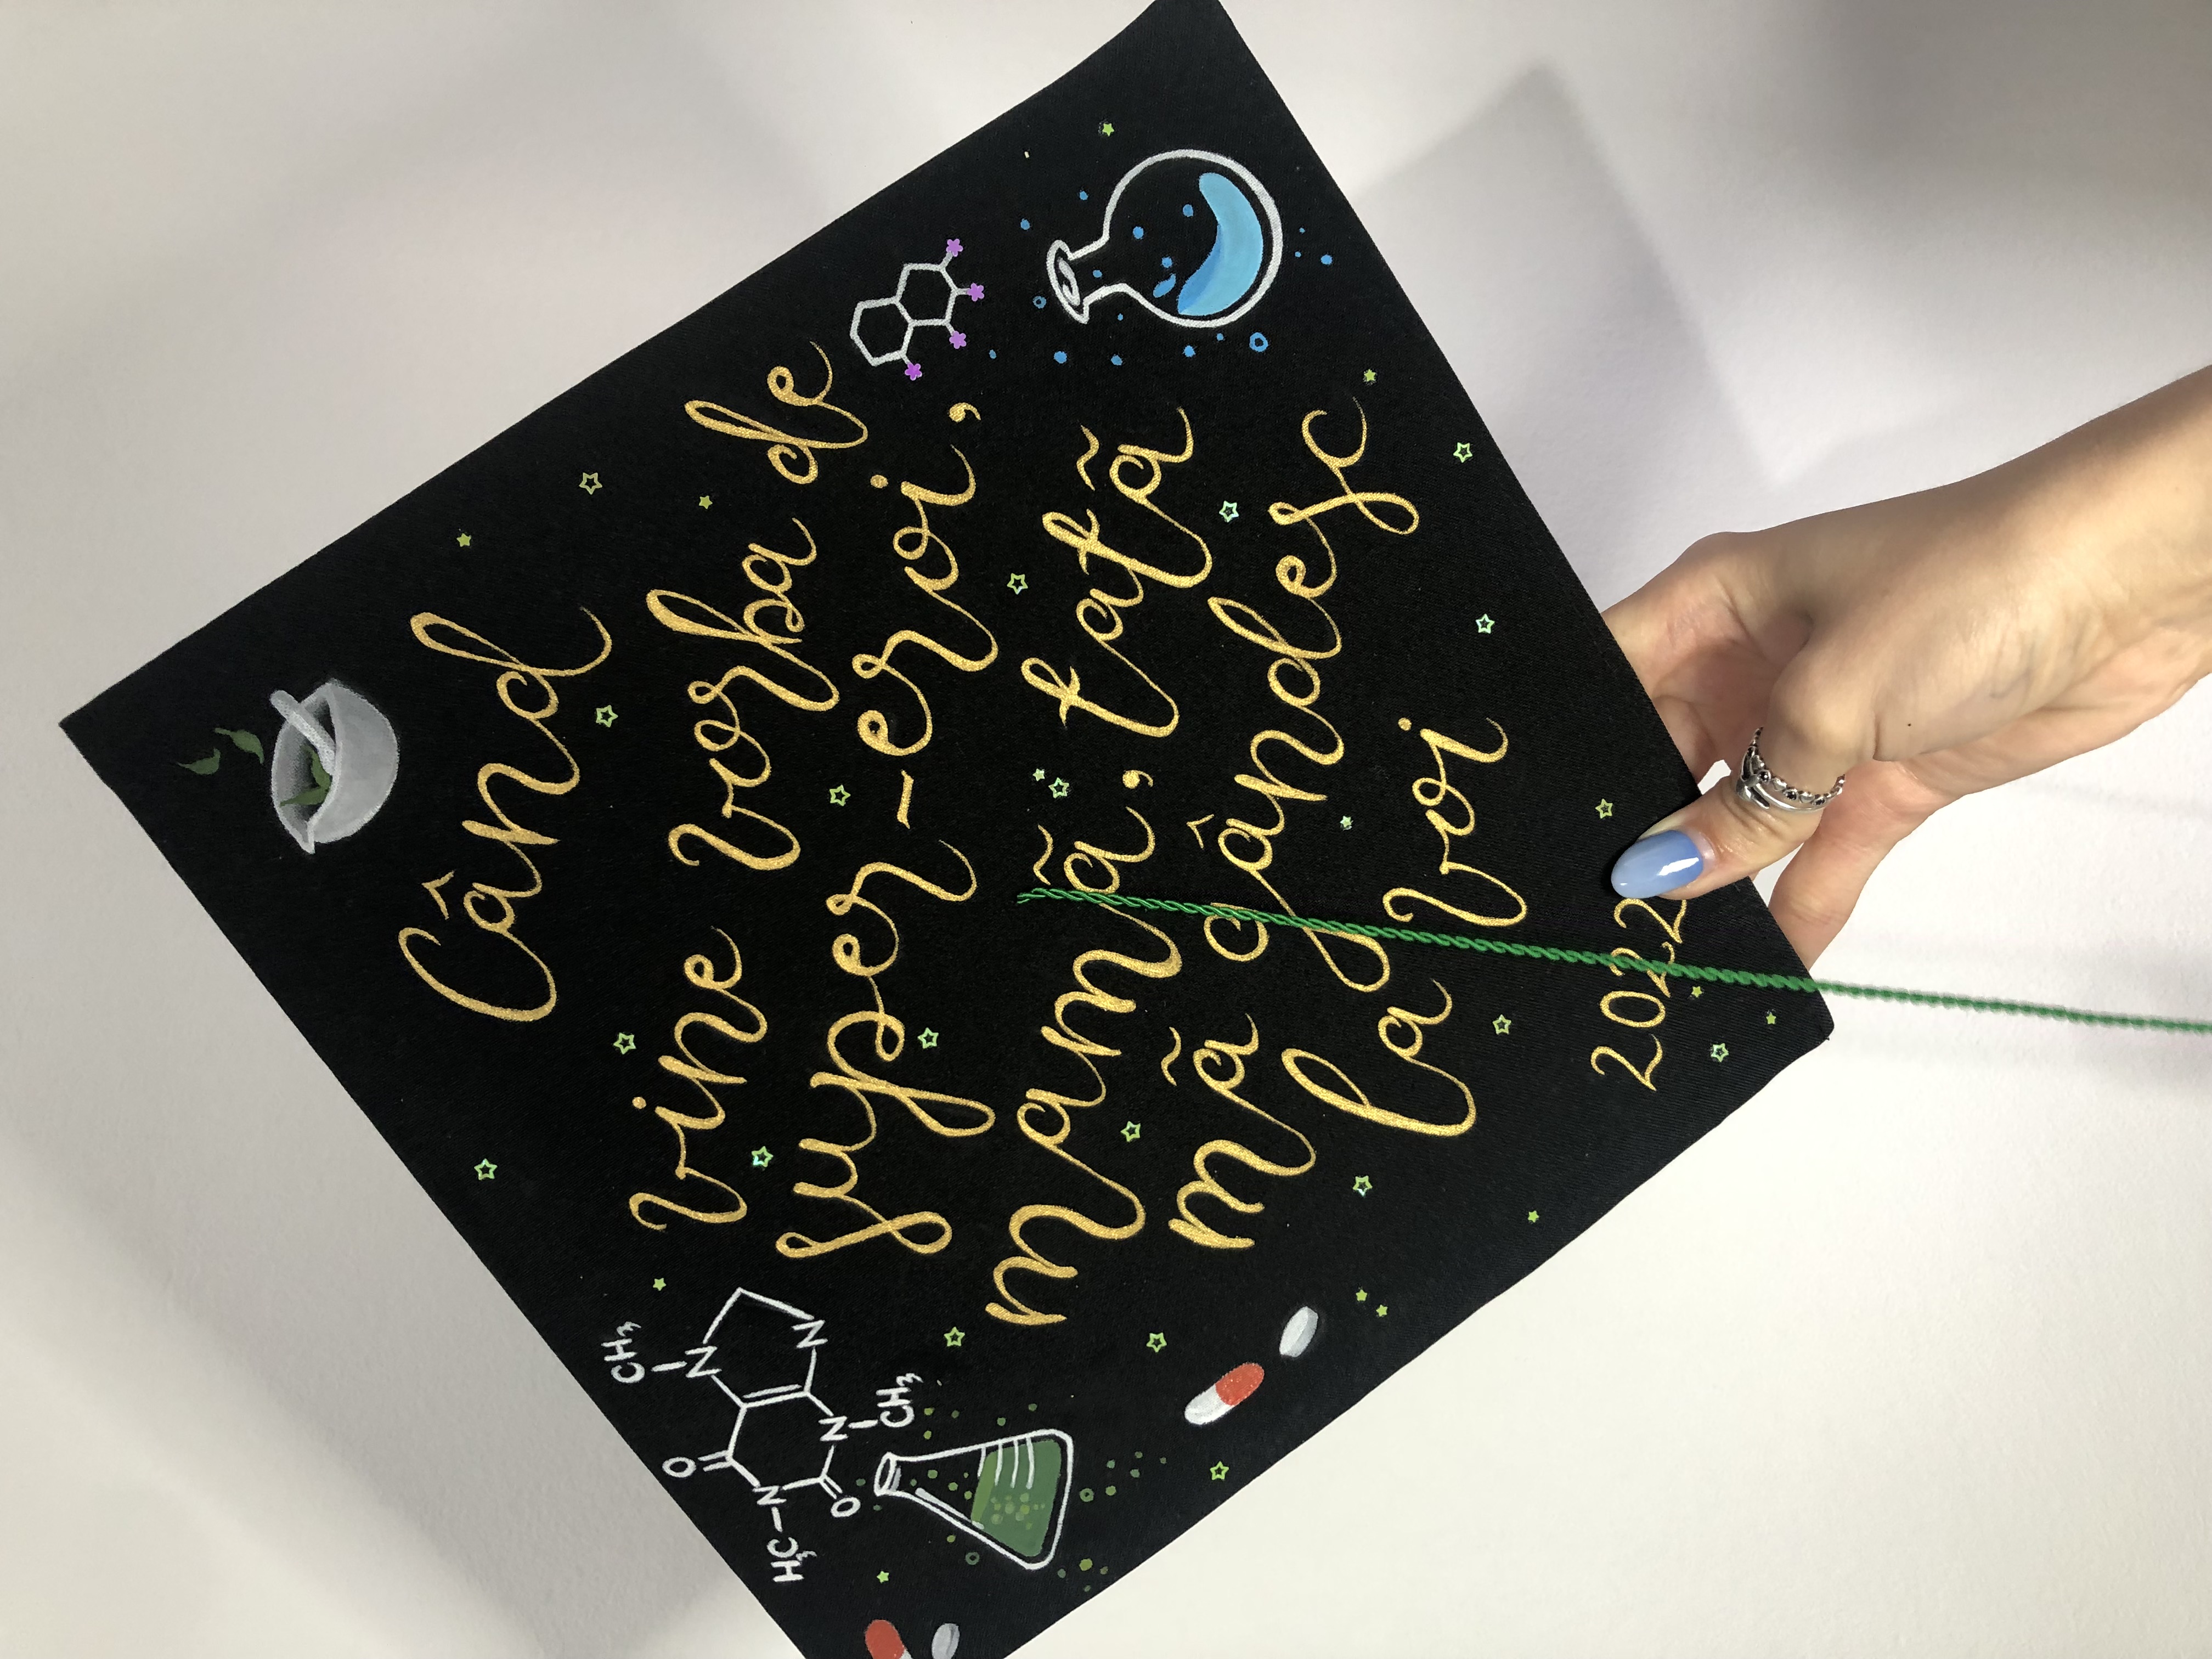 Când
vine vorba de
super-eroi,
mamã, tatã
mã gândesc
la voi
2022
CH3
O
N
H3C-N
N
O
N
CH3